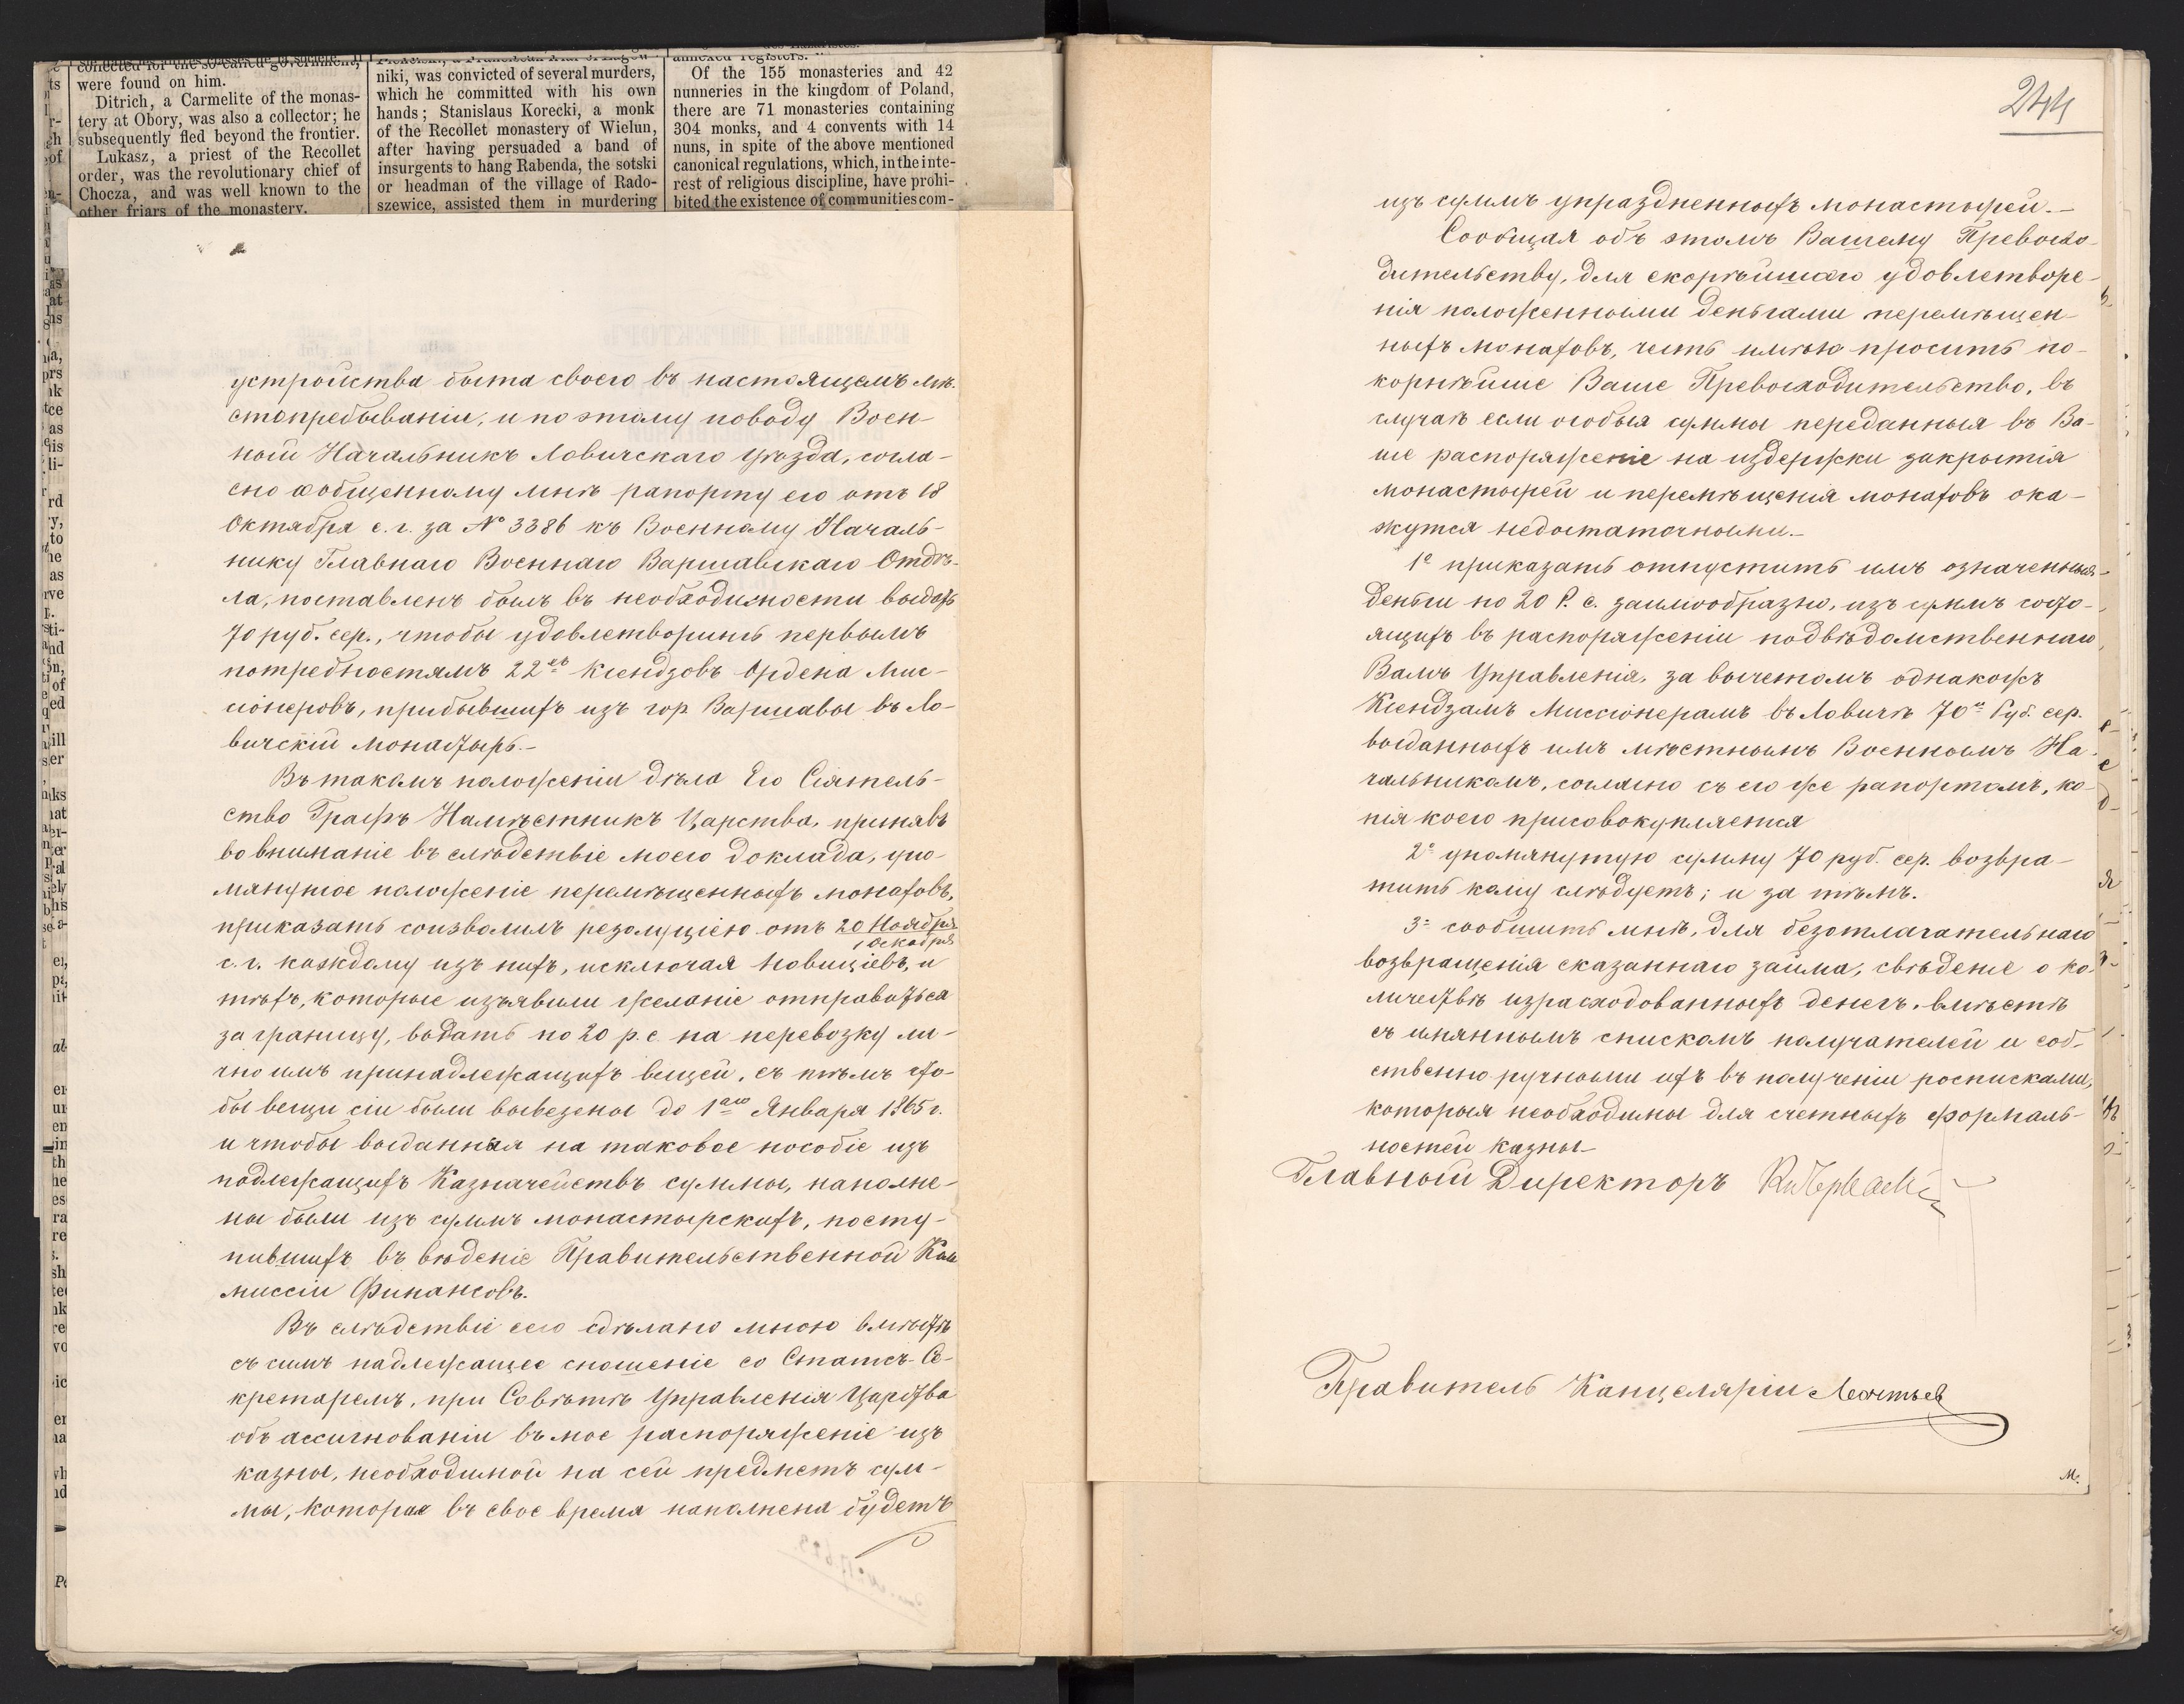 were found on him.
Ditrich, a Carmelite of the monas-
tery at Obory, was also a collector; he
subsequently fled beyond the frontier.
Lukasz, a priest of the Recollet
order, was the revolutionary chief of
Chocza, and was well known to the
other friars of the monastery.
niki, was convicted of several murders,
which he committed with his own
hands; Stanislaus Korecki, a monk
of the Recollet monastery of Wielun,
after having persuaded a band of
insurgents to hang Rabenda, the sotski
or headman of the village of Rado-
szewice, assisted them in murdering
annexed registers.
Of the 155 monasteries and 42
nunneries in the kingdom of Poland,
there are 71 monasteries containing
304 monks, and 4 convents with 14
nuns, in spite of the above mentioned
canonical regulations, which, in the inte-
rest of religious discipline, have prohi-
bited the existence of communities com-
устройства быта своего въ настоящемъ мѣ-
стопребываніи, и по этому поводу Воен-
ный Начальникъ Ловичскаго Уѣзда, согла-
сно сообщенному мнѣ рапорту его отъ 18
Октября с. г. за № 3386 къ Военному Началь-
нику Главнаго Военнаго Варшавскаго Отдѣ-
ла, поставленъ былъ въ необходимости выдать
70 руб. сер., чтобы удовлетворить первымъ
потребностямъ 22хъ Ксендзовъ Ордена Мис-
сіонеровъ, прибывшихъ изъ гор. Варшавы въ Ло-
вичскій монастырь.-
Въ такомъ положеніи дѣла Его Сіятель-
ство Графъ Намѣстникъ Царства, принявъ
во вниманіе въ слѣдствіе моего доклада, упо-
мянутое положеніе перемѣщенныхъ монаховъ,
приказать соизволилъ резолюціею отъ 20 Ноября
с. г. каждому изъ нихъ, исключая новиціевъ, и
тѣхъ, которые изъявили желаніе отправиться
за границу, выдать по 20 р. с. на перевозку ли-
чно имъ принадлежащихъ вещей, съ тѣмъ что-
бы вещи сіи были вывезены до 1аго Января 1865 г.
и чтобы выданныя на таковое пособіе изъ
подлежащихъ Казначействъ суммы, наполне-
ны были изъ суммъ монастырскихъ, посту-
пившихъ въ вѣденіе Правительственной Ком-
миссіи Финансовъ.
Въ слѣдствіе сего сдѣлано мною вмѣстѣ
съ симъ надлежащее сношеніе со Статсъ-Се-
кретаремъ, при Совѣтѣ Управленія Царства
объ ассигнованіи въ мое распоряженіе изъ
казны, необходимой на сей предметъ сум-
мы, которая въ свое время наполнена будетъ
244
изъ суммъ упраздненныхъ монастырей.-
Сообщая объ этомъ Вашему Превосхо-
дительству, для скорѣйшаго удовлетворе-
нія положенными деньгами перемѣщен-
ныхъ монаховъ, честь имѣю просить по-
корнѣйше Ваше Превосходительство, въ
случаѣ если особыя суммы переданныя въ Ва-
ше распоряженіе на издержки закрытія
монастырей и перемѣщенія монаховъ ока-
жутся недостаточными.-
1е приказать отпустить имъ означенныя
деньги по 20 Р. с. заимообразно, изъ суммъ состо-
ящихъ въ распоряженіи подвѣдомственнаго
Вамъ Управленія, за вычетомъ однакожъ
Ксендзамъ Миссіонерамъ въ Ловичѣ 70и Руб. сер.
выданныхъ имъ мѣстнымъ Военнымъ На-
чальникомъ, согласно съ его же рапортомъ, ко-
пія коего присовокупляется
2е упомянутую сумму 70 руб. сер. возвра-
тить кому слѣдуетъ; и за тѣмъ.
3е сообщить мнѣ, для безотлагательнаго
возвращенія сказаннаго займа, свѣденіе о ко-
личествѣ израсходованныхъ денегъ, вмѣстѣ
съ имяннымъ спискомъ получателей и соб-
ственно ручными ихъ въ полученіи росписками,
которыя необходимы для счетныхъ формаль-
ностей казны-
Главный Директоръ
Правитель Канцеляріи Леонтьев
М.